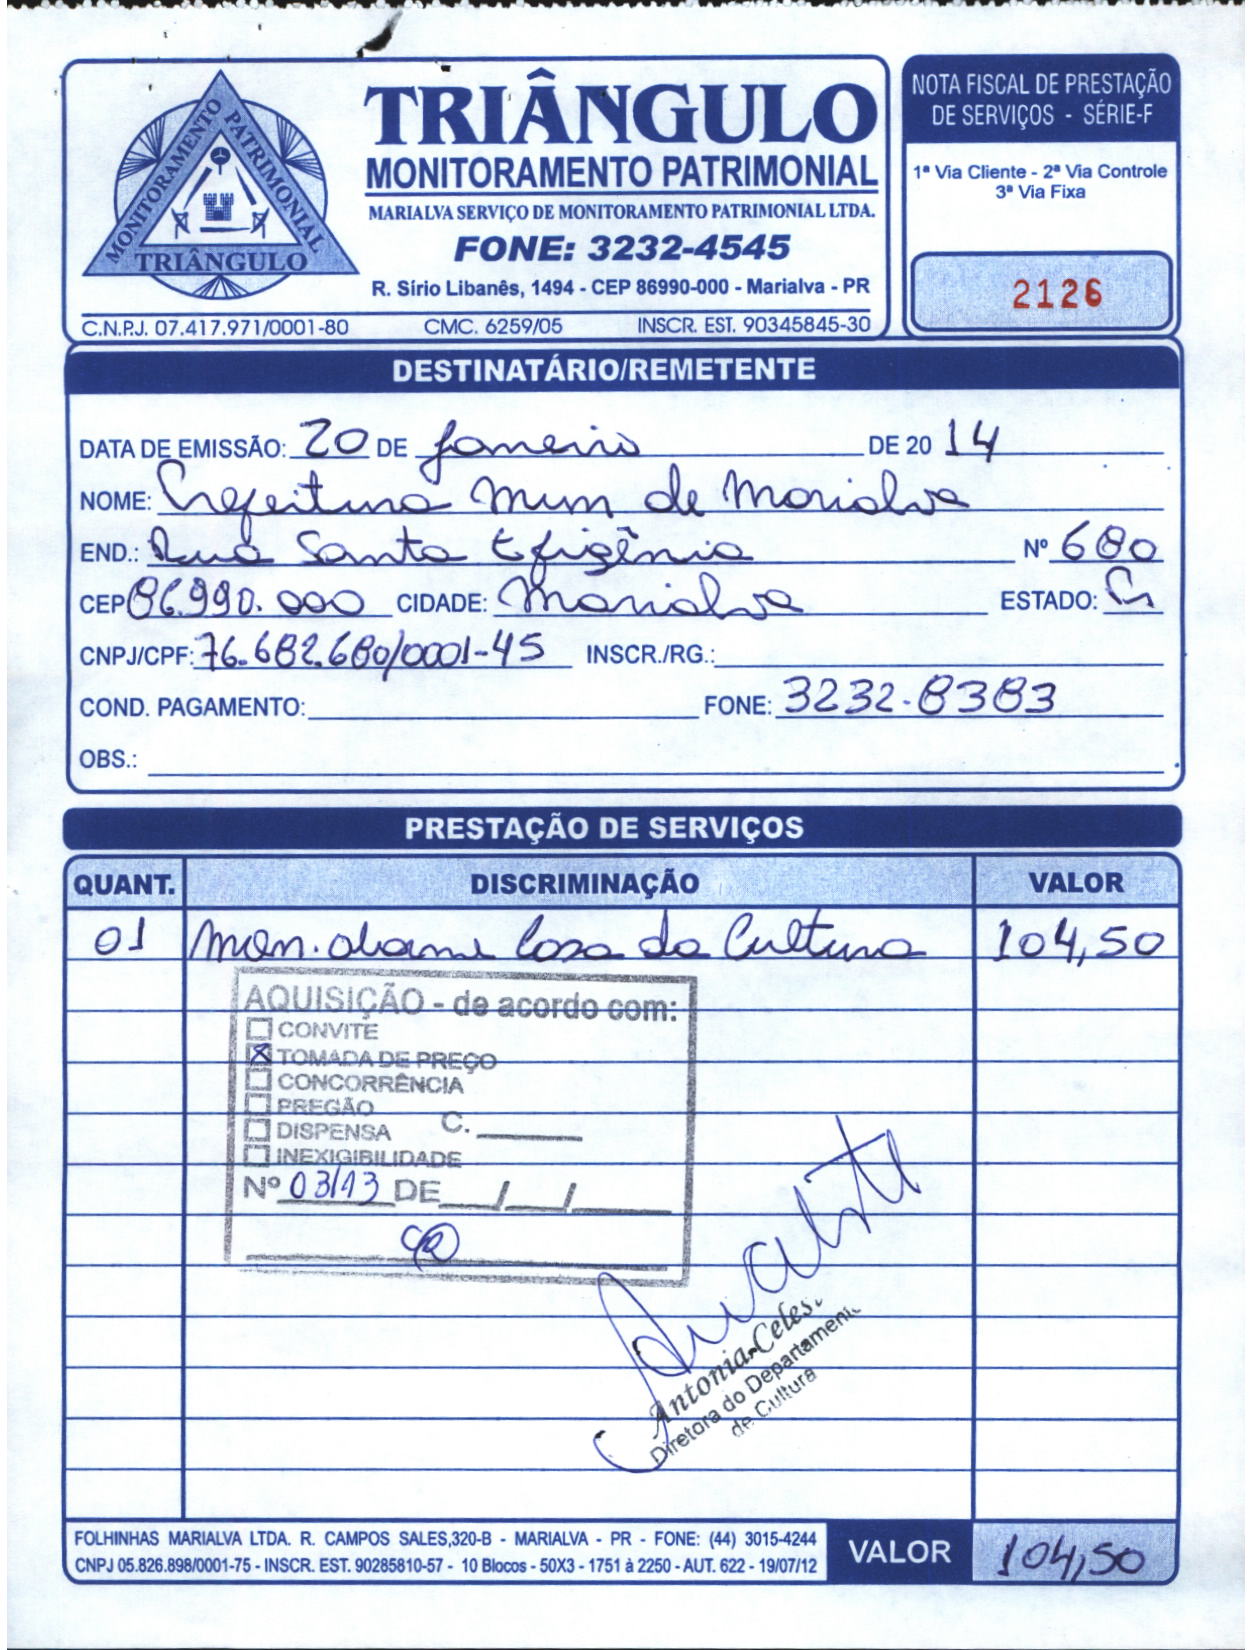 TRIÂNGULO
MONITORAMENTO PATRIMONIAL
MARIALVA SERVIÇO DE MONITORAMENTO PATRIMONIAL LTDA.
FONE: 3232-4545
R. Sírio Libanês, 1494 - CEP 86990-000 - Marialva - PR
MONITORAMENTO PATRIMONIAL
TRIÂNGULO
C.N.P.J. 07.417.971/0001-80 CMC. 6259/05 INSCR. EST. 90345845-30
NOTA FISCAL DE PRESTAÇÃO
DE SERVIÇOS - SÉRIE-F
1ª Via Cliente - 2ª Via Controle
3ª Via Fixa
2126
DESTINATÁRIO/REMETENTE
DATA DE EMISSÃO: 20 DE Janeiro DE 2014
NOME: Prefeitura Mun de Marialva
END.: Rua Santa Efigênia Nº 680
CEP 86.990.000 CIDADE: Marialva ESTADO: Pr
CNPJ/CPF: 76.682.680/0001-45 INSCR./RG.:
COND. PAGAMENTO: FONE: 3232-8383
OBS.:
PRESTAÇÃO DE SERVIÇOS
QUANT. DISCRIMINAÇÃO VALOR
01 Mon. alarme Casa da Cultura 104,50
AQUISIÇÃO - de acordo com:
CONVITE
TOMADA DE PREÇO
CONCORRÊNCIA
PREGÃO
DISPENSA C.
INEXIGIBILIDADE
Nº 03/13 DE / /
Antonia Celes
Diretora do Departamento
de Cultura
FOLHINHAS MARIALVA LTDA. R. CAMPOS SALES,320-B - MARIALVA - PR - FONE: (44) 3015-4244
CNPJ 05.826.898/0001-75 - INSCR. EST. 90285810-57 - 10 Blocos - 50X3 - 1751 à 2250 - AUT. 622 - 19/07/12
VALOR 104,50